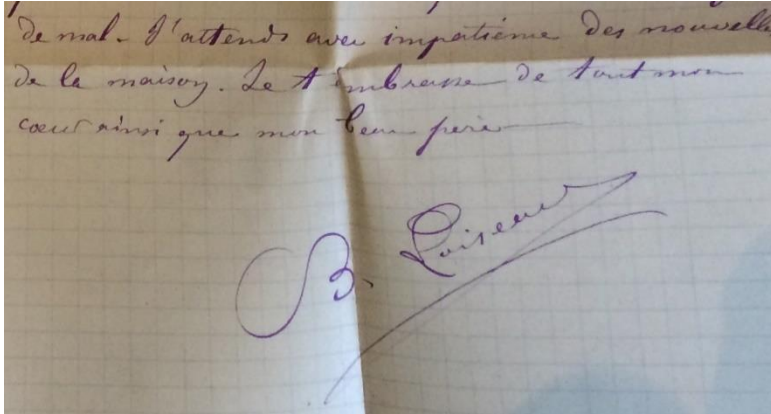 de mal. J'attends avec impatience des nouvelle
de la maison. Je t'embrasse de tout mon
cœur ainsi que mon beau père
B. Loiseau